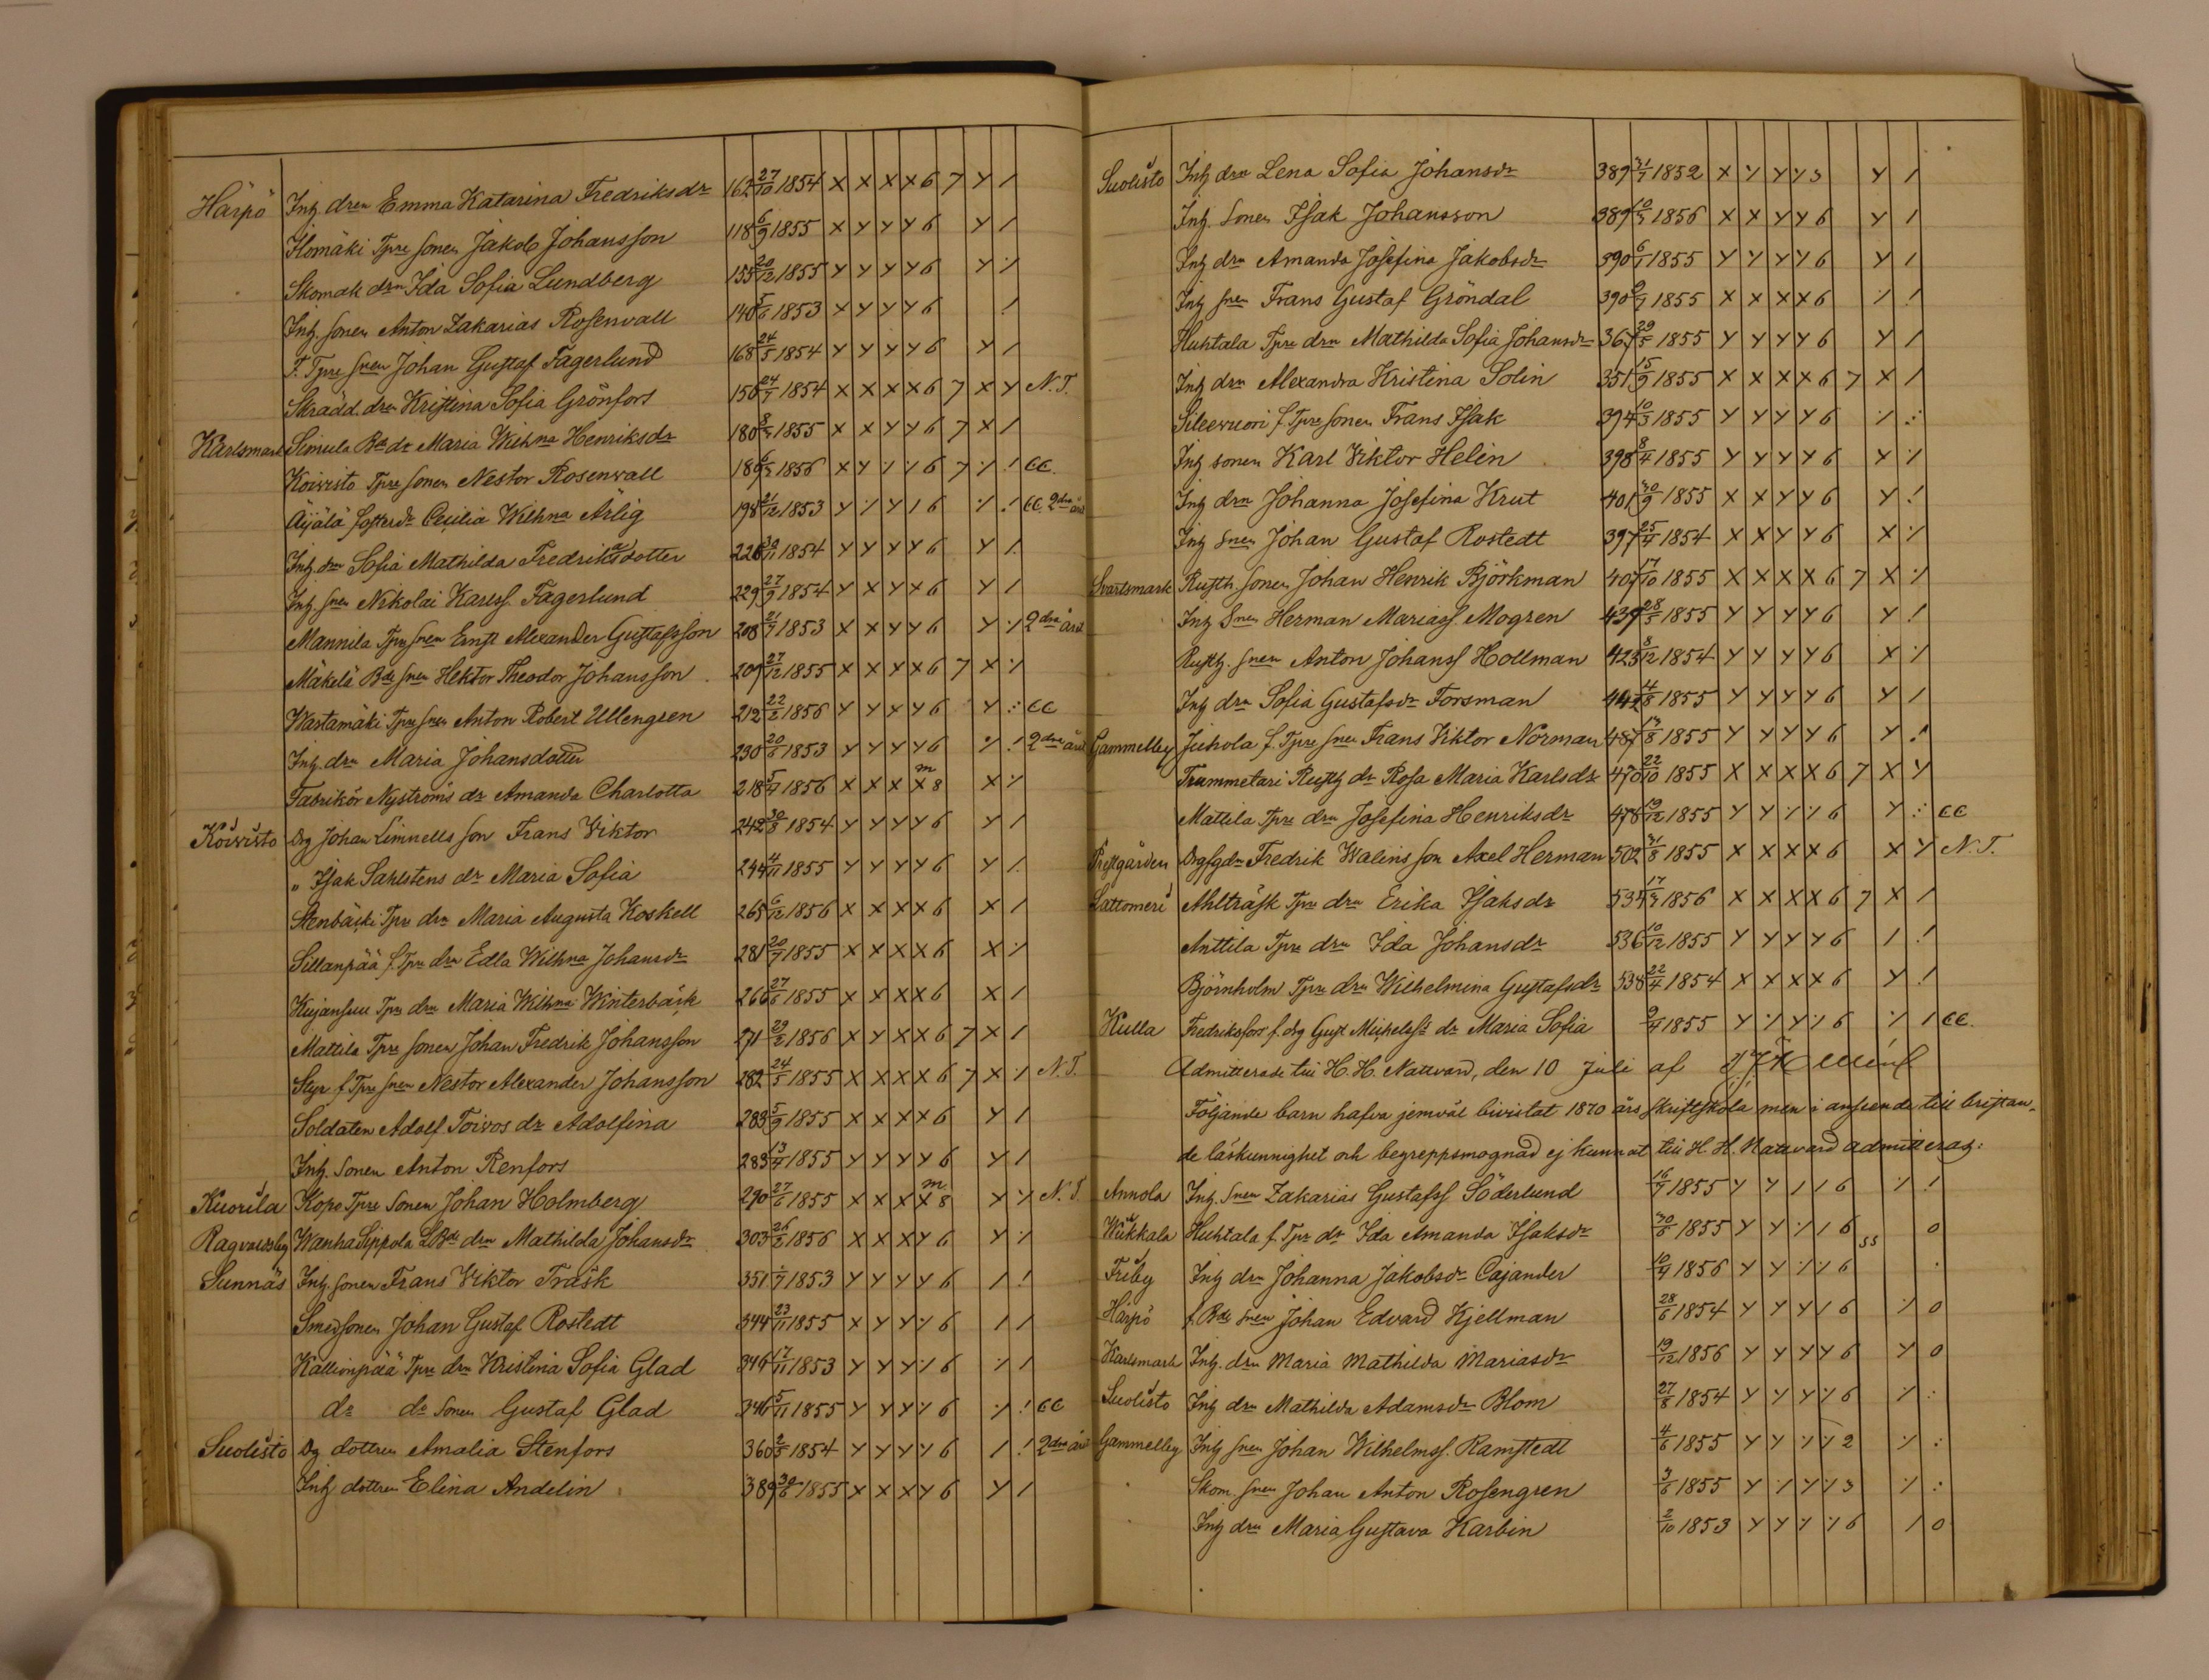 Härpö Inh dren Emma Katarina Fredriksdr 162 27/10 1854 x x x x 6 7 y /
Ilomäki Tpre sonen Jakob Johansson 118 6/9 1855 x y y y 6 y /
Skomak drn Ida Sofia Lundberg 155 20/12 1855 y y y y 6 y ·/.
Inh. sonen Anton Zakarias Rosenvall 140 5/6 1853 x y y y 6 /
T. Tpre snen Johan Gustaf Fagerlund 168 24/5 1854 y y y y 6 y /
Skrädd. drn Kristina Sofia Grönfors 150 24/7 1854 x x x x 6 7 x y N.T.
Karlsmark Simula Bde dr Maria Wilhna Henriksdr 180 1855 x x y y 6 7 x /
Koivisto Tpre sonen Nestor Rosenvall 1856 x y ·/. ·/. 6 7 ·/. ! CC.
Äijälä fosterdr Cecilia Wilhna Ärlig 198 21/12 1853 y ·/. y / 6 ·/. ! CC. 2dra året
Inh. drn Sofia Mathilda Fredriksdotter 1854 y y y y 6 y /
Inh. snen Nikolai Karlss. Fagerlund 229 27/9 1854 y x y x 6 y /
Mannila Tpre snen Ernst Alexander Gustafsson 208 21/7 1853 x x y y 6 y ·/. 2dra året
Mäkelä Bde snen Hektor Theodor Johansson 209 27/12 1855 x x x x 6 7 x ·/.
Wastamäki Tpre snen Anton Robert Ullengren 212 22/2 1856 y y y y 6 y : CC
Inh. drn Maria Johansdotter 230 20/6 1853 y y y y 6 ·/. ! 2dra året
Fabrikör Nyströms dr Amanda Charlotta 218 5/4 1856 x x x x m 8 x ·/.
Koivisto Drg Johan Limnells son Frans Viktor 242 30/8 1854 y y y y 6 y /
" Isak Sahlstens dr Maria Sofia 244 4/11 1855 y y y y 6 y /
Stenbäcki Tpre drn Maria Augusta Koskell 265 6/12 1856 x x x x 6 x /
Sillanpää f. Tpre drn Edla Wilhna Johansdr 281 20/7 1855 x x x x 6 x ·/.
Kujansuu Tpre drn Maria Wilhna Winterbäck 266 27/6 1855 x x x x 6 x /
Mattila Tpre sonen Johan Fredrik Johansson 271 29/2 1856 x y x x 6 7 x /
Styr f Tpre snen Nestor Alexander Johansson 282 24/5 1855 x x x x 6 7 x ·/. N.T.
Soldaten Adolf Toivos dr Adolfina 283 5/9 1855 x x x x 6 y /
Inh. sonen Anton Renfors 283 13/4 1855 y y y y 6 y /
Kuorila Kopo Tpre sonen Johan Holmberg 290 27/6 1855 x x x x m 8 y ·/. N.T.
Ragvaldsby Wanha Sippola LBde drn Mathilda Johansdr 303 26/2 1856 x x x y 6 y ·/.
Sunnäs Inh. sonen Frans Viktor Träsk 351 1853 y y y y 6 / !
Smedsonen Johan Gustaf Rostedt 344 23/11 1855 x y y ·/. 6 / /
Kallionpää Tpre drn Kristina Sofia Glad 346 17/11 1853 y y y ·/. 6 ·/. /
do do sonen Gustaf Glad 346 5/11 1855 y y y ·/. 6 ·/. ! CC
Suolisto Dg dottren Amalia Stenfors 360 2/5 1854 y y y ·/. 6 / ! 2dra året
Inh dottren Elina Andelin 389 30/6 1855 x x x y 6 y /
Suolisto Inh drn Lena Sofia Johansdr 389 31/7 1852 x ·/. y ·/. 3 y /
Inh. sonen Isak Johansson 389 1856 x x y y 6 y /
Inh drn Amanda Josefina Jakobsdr 390 1855 y y y y 6 y /
Inh snen Frans Gustaf Gröndal 390 1855 x x x x 6 ·/. !
Huhtala Tpre drn Mathilda Sofia Johansdr 367 29/5 1855 y y y y 6 y /
Inh drn Alexandra Kristina Solin 351 15/9 1855 x x x x 6 7 x /
Sileevuori f. Tpre sonen Frans Isak 394 10/3 1855 y y y y 6 ·/. :
Inh sonen Karl Viktor Helin 398 8/4 1855 y y y y 6 y ·/.
Inh drn Johanna Josefina Krut 401 30/9 1855 x x y y 6 y !
Inh snen Johan Gustaf Rostedt 397 25/4 1854 x x y y 6 x ·/.
Svartsmark Rusth. sonen Johan Henrik Björkman 407 17/10 1855 x x x x 6 7 x ·/.
Inh snen Herman Mariass Mogren 439 28/5 1855 y y y y 6 y !
Rusth. snen Anton Johanss Hollman 423 8/12 1854 y y y y 6 x ·/.
Inh drn Sofia Gustafsdr Forsman 4/8 1855 y y y y 6 y /
Gammelby Juhola f. Tpre snen Frans Viktor Norman 487 13/8 1855 y y y y 6 y !
Trummetari Rusth dr Rosa Maria Karlsdr 470 22/10 1855 x x x x 6 7 x y
Mattila Tpre drn Josefina Henriksdr 478 19/12 1855 y y ·/. ·/. 6 y : CC
Prestgården Drgsgdn Fredrik Walins son Axel Herman 502 31/8 1855 x x x x 6 x y N.T.
Lattomeri Ahlträsk Tpre drn Erika Isaksdr 534 1856 x x x x 6 7 x /
Anttila Tpre drn Ida Johansdr 536 10/12 1855 y y y y 6 / !
Björnholm Tpre drn Wilhelmina Gustafsdr 538 22/4 1854 x x x x 6 y !
Kulla Fredriksfors f. drg Gust Mickelss dr Maria Sofia 9/4 1855 y ·/. y ·/. 6 ·/. / CC.
Admitterade till H. H. Nattvard, den 10 Juli af
Följande barn hafva jemväl bivistat 1870 års skriftskola men i anseende till bristan-
de läskunnighet och begreppsmognad ej kunnat till H. H. Nattvard admitteras:
Annola Inh. snen Zakarias Gustafss Söderlund 16/7 1855 y y / / 6 ·/. !
Wiikkala Huhtala f. Tpre dr Ida Amanda Isaksdr 30/6 1855 y y ·/. / 6 ss 0
Friby Inh drn Johanna Jakobsdr Cajander 10/4 1856 y y ·/. ·/. 6 .
Härpö f. Bde snen Johan Edvard Kjellman 28/6 1854 y y y / 6 ·/. 0
Karlsmark Inh. drn Maria Mathilda Mariasdr 19/12 1856 y y y y 6 y 0
Suolisto Inh drn Mathilda Adamsdr Blom 27/8 1854 y y y ·/. 6 ·/. :
Gammelby Inh snen Johan Wilhelmss. Ramstedt 4/6 1855 y y ·/. ·/. 2 ·/. :
Skom. snen Johan Anton Rosengren 3/6 1855 y ·/. y ·/. 3 ·/. :
Inh drn Maria Gustava Karbin 2/10 1853 y y ·/. ·/. 6 / 0